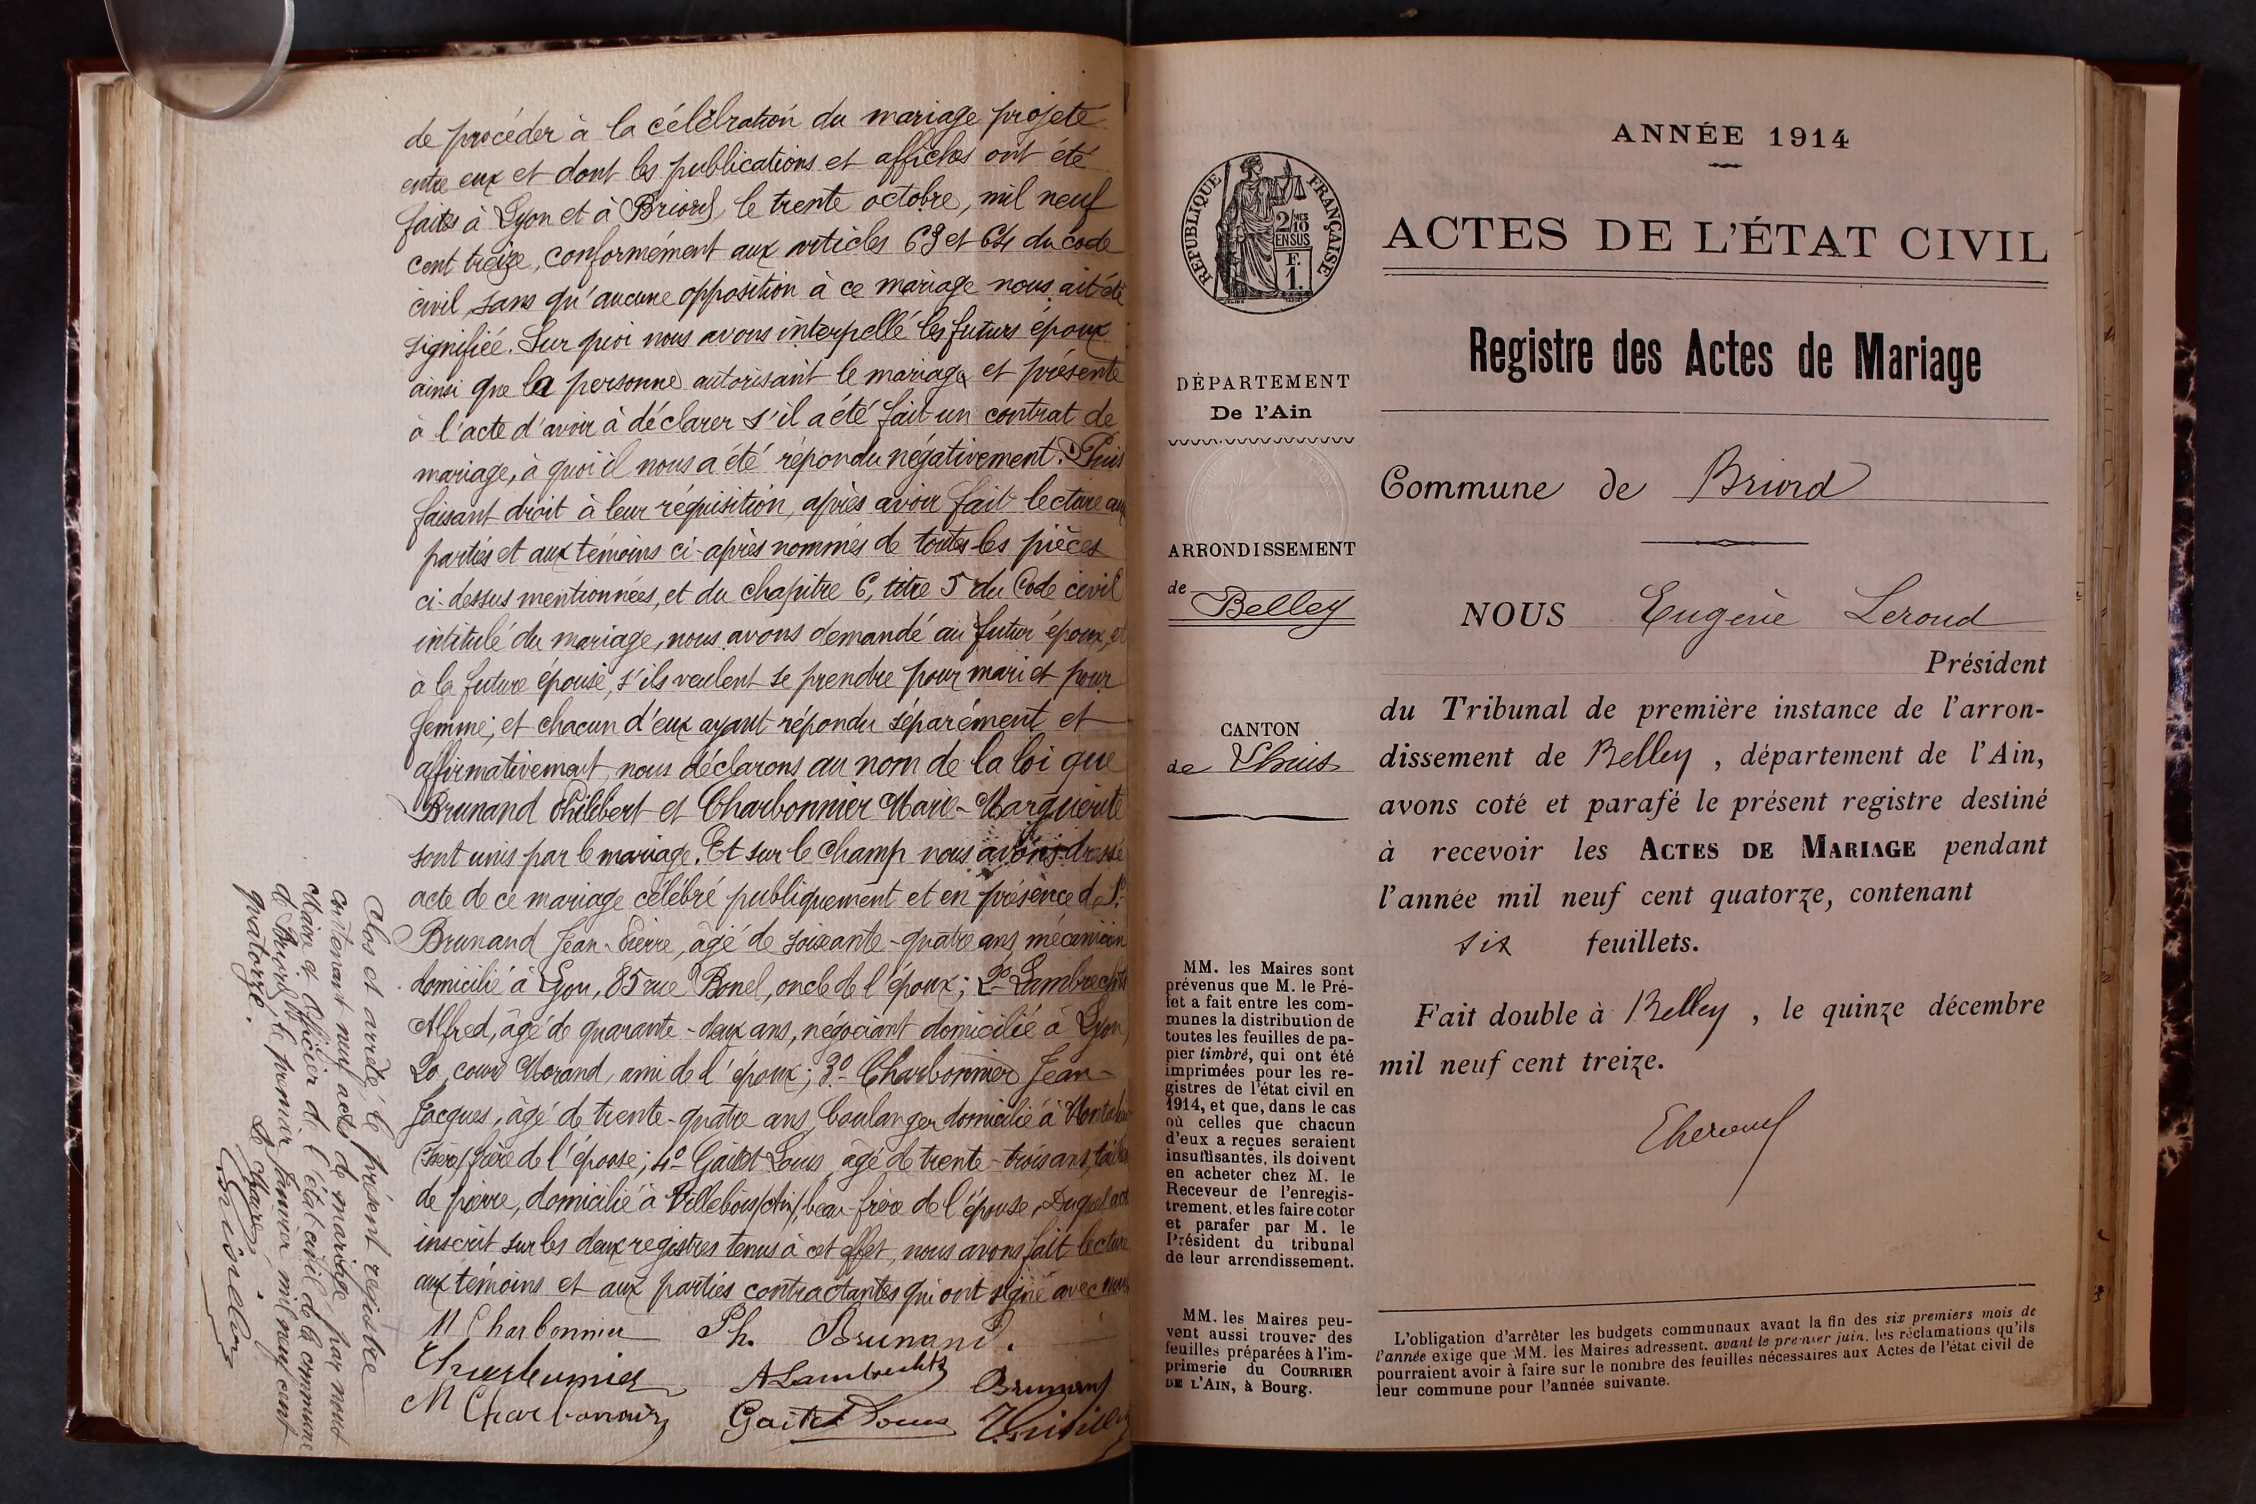 de procéder à la célébration du mariage projeté
entre eux et dont les publications et affiches ont été
faites à Lyon et à Briord, le trente octobre, mil neuf
cent treize, conformément aux articles 63 et 64 du code
civil, sans qu'aucune opposition à ce mariage nous ait été
signifiée. Sur quoi nous avons interpellé les futurs époux
ainsi que la personne autorisant le mariage et présente
à l'acte d'avoir à déclarer s'il a été fait un contrat de
mariage, à quoi il nous a été répondu négativement. Puis
faisant droit à leur réquisition, après avoir fait lecture aux
parties et aux témoins ci-après nommés de toutes les pièces
ci-dessus mentionnées, et du chapitre 6, titre 5 du Code civil
intitulé du mariage, nous avons demandé au futur époux, et
à la future épouse, s'ils veulent se prendre pour mari et pour
femme; et chacun d'eux ayant répondu séparément et
affirmativement, nous déclarons au nom de la loi que
Brunand Philibert et Charbonnier Marie-Marguerite
sont unis par le mariage. Et sur le champ nous avons dressé
acte de ce mariage célébré publiquement et en présence de 1º-
Brunand Jean-Pierre, âgé de soixante-quatre ans, mécanicien
domicilié à Lyon, 85 rue Bonnel, oncle de l'époux; 2º- Lambrechts
Alfred, âgé de quarante-deux ans, négociant domicilié à Lyon,
20, cours Morand, ami de l'époux; 3º- Charbonnier Jean-
Jacques, âgé de trente-quatre ans, boulanger domicilié à
(Isère) frère de l'épouse; 4º- Gaitet Louis, âgé de trente-trois ans, tailleur
de pierre, domicilié à Villebois (Ain), beau-frère de l'épouse. Duquel acte
inscrit sur les deux registres tenus à cet effet, nous avons fait lecture
aux témoins et aux parties contractantes qui ont signé avec nous
M Charbonnier Ph. Brunand.
Charbonnier A Lambrechts Brunand
M Charbonnier Gaitet Louis
Clos et arrêté, le présent registre
contenant neuf actes de mariage, par nous
Maire et Officier de l'état civil de la commune
de Briord, le premier Janvier mil neuf cent
quatorze.
Le Maire,
ANNÉE 1914
RÉPUBLIQUE FRANÇAISE
2/10 MES
EN SUS
F.
1.
ACTES DE L'ÉTAT CIVIL
Registre des Actes de Mariage
DÉPARTEMENT
De l'Ain
ARRONDISSEMENT
de Belley
CANTON
de Lhuis
MM. les Maires sont
prévenus que M. le Pré-
fet a fait entre les com-
munes la distribution de
toutes les feuilles de pa-
pier timbré, qui ont été
imprimées pour les re-
gistres de l'état civil en
1914, et que, dans le cas
où celles que chacun
d'eux a reçues seraient
insuffisantes, ils doivent
en acheter chez M. le
Receveur de l'enregis-
trement, et les faire coter
et parafer par M. le
Président du tribunal
de leur arrondissement.
MM. les Maires peu-
vent aussi trouver des
feuilles préparées à l'im-
primerie du COURRIER
DE L'AIN, à Bourg.
Commune de Briord
NOUS Eugène Leroud
Président
du Tribunal de première instance de l'arron-
dissement de Belley , département de l'Ain,
avons coté et parafé le présent registre destiné
à recevoir les ACTES DE MARIAGE pendant
l'année mil neuf cent quatorze, contenant
six feuillets.
Fait double à Belley , le quinze décembre
mil neuf cent treize.
L'obligation d'arrêter les budgets communaux avant la fin des six premiers mois de
l'année exige que MM. les Maires adressent, avant le premier juin, les réclamations qu'ils
pourraient avoir à faire sur le nombre des feuilles nécessaires aux Actes de l'état civil de
leur commune pour l'année suivante.